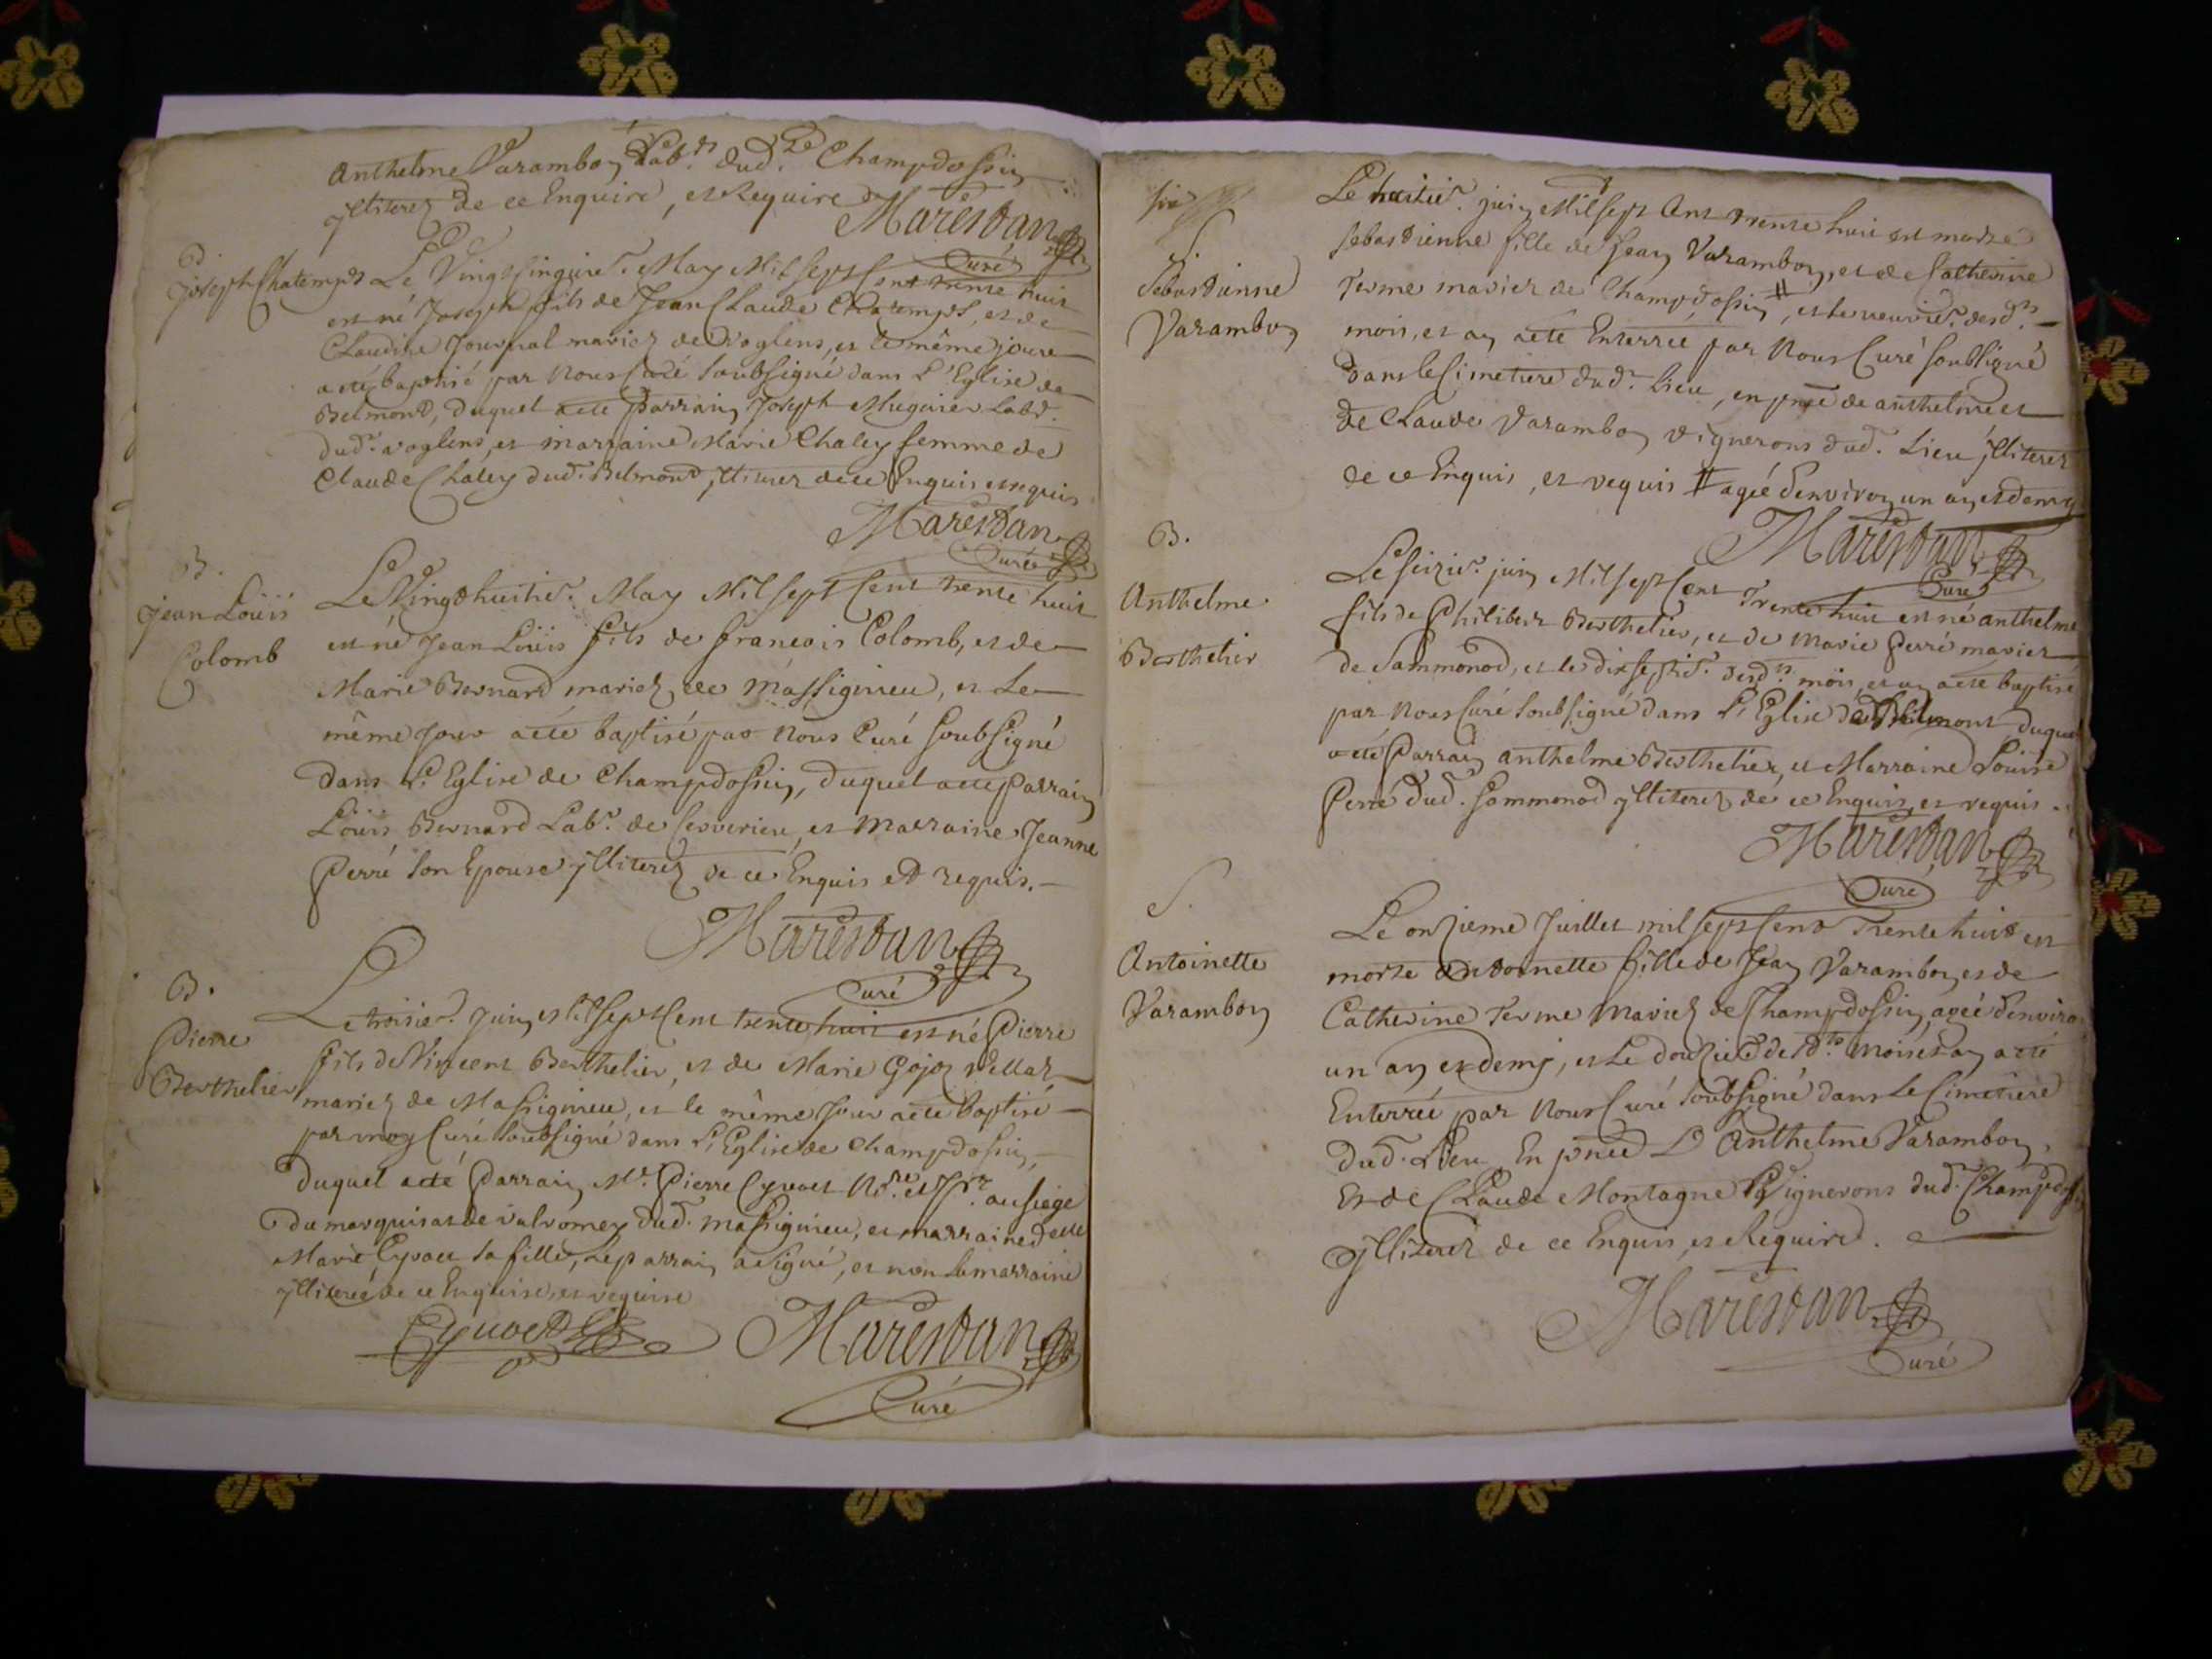 Anthelme Varambon Lab.rs dud. Champdossin
jlliterez de ce Enquire, et Require
Marestan
Curé
Joseph Chatempt
Le Vingt cinquie. May Mil Sept Cent trente huit
est né Joseph fils de Jean Claude Chatempt, et de
Claudine Journal mariez de Voglens, et le même jour
a été baptisé par Nous Curé Soubsigné dans L'Eglise de
Belmont, duquel a eté parrain Joseph Muguier Labr.
dud. voglens, et marraine Marie Chaley femme de
Claude Chaley dud. Belmont jlliterez de ce Enquis et requis
Marestan
Curé
B.
Jean Loüis
Colomb
Le Vingt huitie. May Mil sept Cent trente huit
est né Jean Loüis fils de francois Colomb, et de
Marie Bernard mariez de Massignieu, et Le
même Jour a eté baptisé par Nous Curé Soubsigné
dans L'Eglise de Champdossin, duquel a eté Parrain
Loüis Bernard Labr. de Cerverieu, et Marraine Jeanne
Perré son Epouse jlliterez de ce Enquis et requis.
Marestan
Curé
B.
Pierre
Berthelier
Le troisie. Juin Mil Sept Cent trente huit est né Pierre
fils de Vincent Berthelier, et de Marie Gojoz
mariez de Massignieu, et le même Jour a eté baptisé
par moy Curé Soubsigné dans L'Eglise de Champdossin,
duquel a eté Parrain Mr. Pierre Cyvoct Nre. et au siege
du marquisat de valromey dud. Massignieu, et marraine delle
Marie Cyvoct sa fille, Le parrain a signé, et non la marraine
jlliterée de ce Enquise, et requise
Cyvoct
Marestan
Curé
S.
Sebastienne
Varambon
Le huitie. juin Mil sept Cent trente huit est morte
Sebastienne fille de Jean Varambon, et de Catherine
Terme mariez de Champdossin #, et le neuvie. desd.
mois, et an a eté Enterrée par Nous Curé Soubsigné
dans le Cimetiere dud. Lieu, en pnce de anthelme et
de Claude Varambon vignerons dud. Lieu jlliterez
de ce Enquis, et requis # ageé d'environ un an, et demy
Marestan
Curé
B.
Anthelme
Berthelier
Le seizie. juin Mil sept Cent Trente huit est né anthelme
fils de Philibert Berthelier, et de Marie Perré mariez
de Sammonod, et le dixseptie. desd. mois, et an a eté baptisé
par Nous Curé Soubsigné dans L'Eglise de Belmont duquel
a eté Parrain anthelme Berthelier, et Marraine Louise
Perré dud. Sommonod jlliterez de ce Enquis, et requis.
Marestan
Curé
S.
Antoinette
Varambon
Le onzieme Juillet mil sept Cent Trente huit est
morte antoinette fille de Jean Varambon, et de
Catherine Terme Mariez de Champdossin, ageé d'environ
un an et demj, et Le douzie desd. Mois et an a eté
Enterrée par Nous Curé Soubsigné dans Le Cimetiere
dud. Lieu En pnce D'Anthelme Varambon
Et de Claude Montagne Vignerons dud. Champdossin
jlliterez de ce Enquis, et Require.
Marestan
Curé